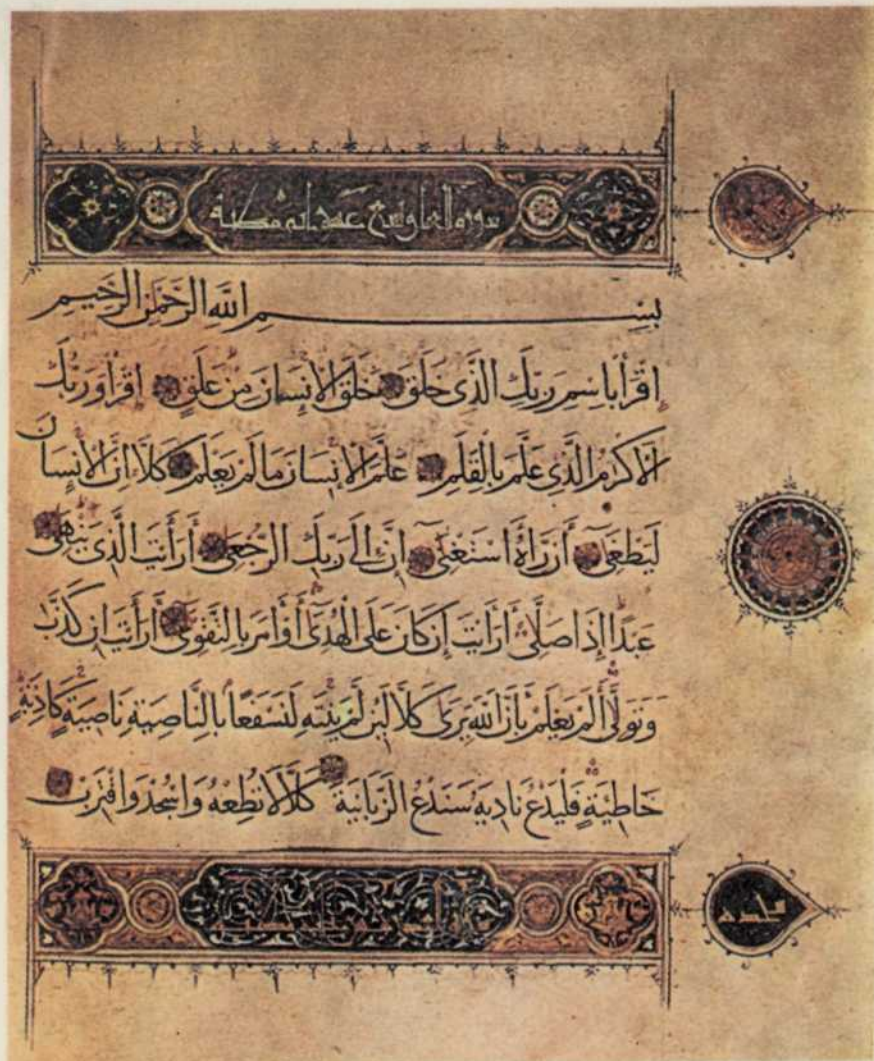 سورة العلق تسع عشر اية مكية
بِسْمِ اللَّهِ الرَّحْمَنِ الرَّحِيمِ
اِقْرَأْ بِاسْمِ رَبِّكَ الَّذِي خَلَقَ خَلَقَ الْاِنْسَانَ مِنْ عَلَقٍ اِقْرَأْ وَرَبُّكَ
الْاَكْرَمُ الَّذِي عَلَّمَ بِالْقَلَمِ عَلَّمَ الْاِنْسَانَ مَا لَمْ يَعْلَمْ كَلَّا اِنَّ الْاِنْسَانَ
لَيَطْغَى أَنْ رَآهُ اسْتَغْنَى إِنَّ إِلَى رَبِّكَ الرُّجْعَى أَرَأَيْتَ الَّذِي يَنْهَى
عَبْدًا إِذَا صَلَّى أَرَأَيْتَ إِنْ كَانَ عَلَى الْهُدَى أَوْ أَمَرَ بِالتَّقْوَى أَرَأَيْتَ إِنْ كَذَّبَ
وَتَوَلَّى أَلَمْ يَعْلَمْ بِأَنَّ اللَّهَ يَرَى كَلَّا لَئِنْ لَمْ يَنْتَهِ لَنَسْفَعًا بِالنَّاصِيَةِ نَاصِيَةٍ كَاذِبَةٍ
خَاطِئَةٍ فَلْيَدْعُ نَادِيَهُ سَنَدْعُ الزَّبَانِيَةَ كَلَّا لَا تُطِعْهُ وَاسْجُدْ وَاقْتَرِبْ